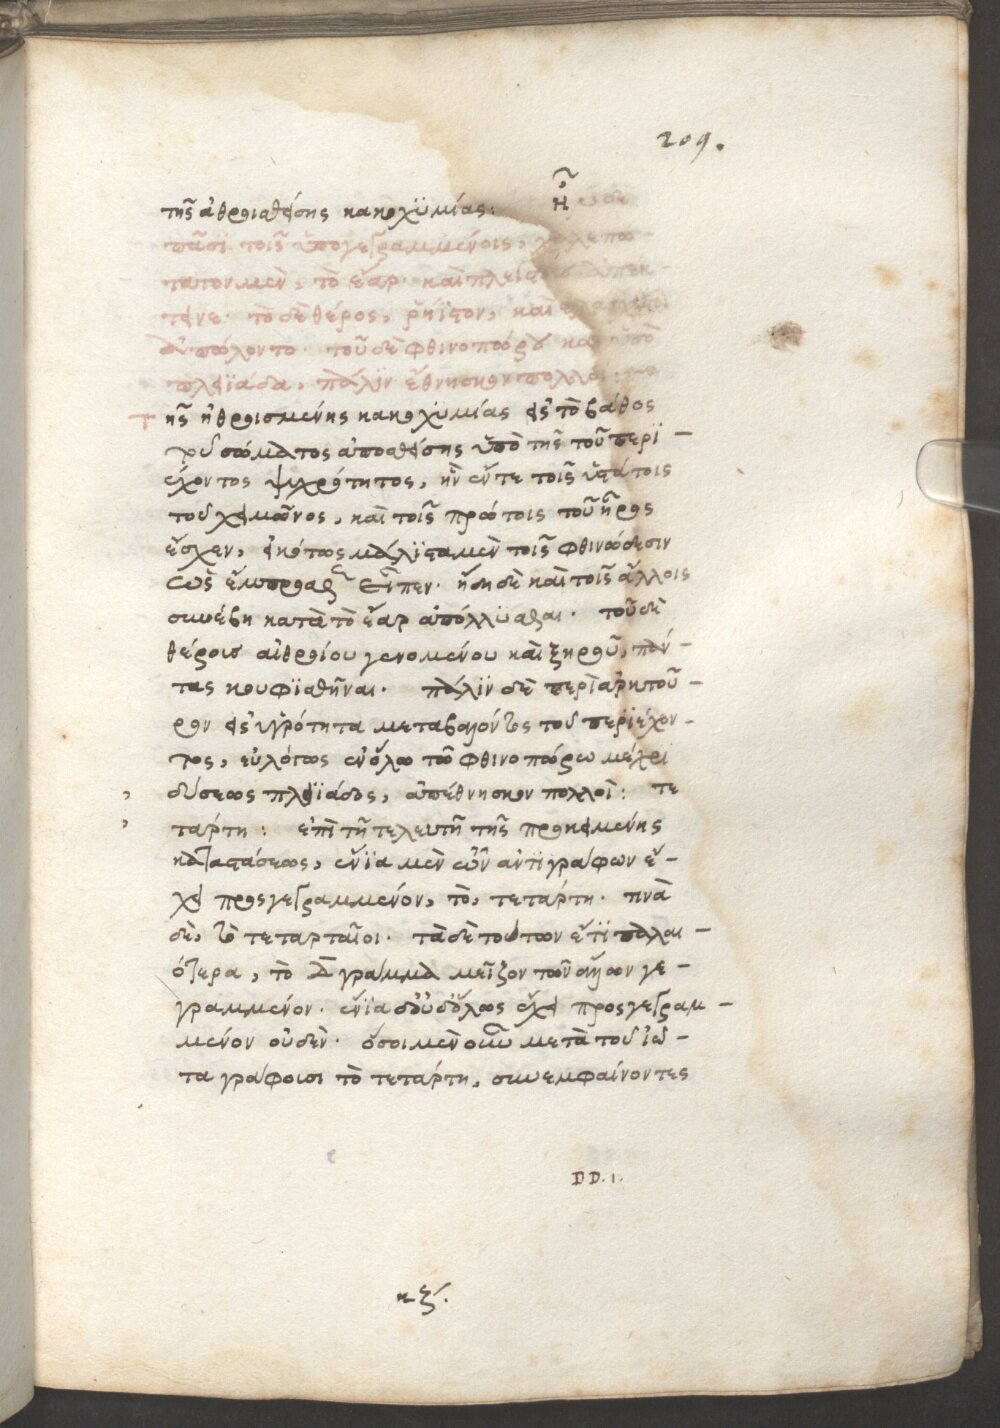 209.
τῆς ἀθροισθείσης κακοχϋμίας: Ἦ
πᾶσϊ τοῖς ὑπογεγραμμένοις, χαλεπώ
τατον μὲν, τὸ ἔαρ· καὶ πλείστους ἀπέκ
τεινε· τὸ δὲ θέρος, ῥήϊστον, καὶ
ἀπώλοντο· τοῦ δὲ φθινοπώρου καὶ ὑπὸ
πληϊάδα, πάλϊν ἔθνησκον πολλοί:
Τῆς ἠθροισμένης κακοχϋμίας εἰς τὸ βάθος
τοῦ σώματος ἀπωσθείσης ὑπὸ τῆς τοῦ περϊ-
έχοντος ψυχρότητος, ἣν ἔν τε τοῖς ὑστάτοις
τοῦ χειμῶνος, καὶ τοῖς πρώτοις τοῦ ἦρος
ἔσχεν, εἰκότως μάλϊστα μὲν τοῖς φθινώδεσιν
ὡς ἔμπροσθεν εἶπεν· ἤδη δὲ καὶ τοῖς ἄλλοις
συνέβη κατὰ τὸ ἔαρ ἀπόλλϋσθαι· τοῦ δὲ
θέρους αἰθρίου γενομένου καὶ ξηροῦ, πάν-
τας κουφϊσθῆναι· πάλϊν δὲ περὶ ἀρκτοῦ-
ρον εἰς ὑγρότητα μεταβαλόντος τοῦ περϊέχον-
τος, εὐλόγως ἐν ὅλω τῶ φθινοπώρω μέχρϊ
δύσεως πληϊάδος, ἀπέθνησκον πολλοί: τε
τάρτη: ἐπὶ τῆ τελευτῆ τῆς προκειμένης
καταστάσεως, ἔνϊα μὲν τῶν ἀντϊγράφων ἔ-
χει προσγεγραμμένον, τὸ, τετάρτη· τινὰ
δὲ, τὸ τεταρταῖοι· τὰ δὲ τούτων ἔτϊ παλαι-
ότερα, τὸ Δ γράμμα μεῖζον τῶν ἄλλων γε-
γραμμένον· ἔνϊα δ' οὐδ' ὅλως ἔχει προσγεγραμ-
μένον οὐδέν· ὅσοι μὲν οὖν μετὰ τοῦ ἰῶ-
τα γράφουσι τὸ τετάρτη, συνεμφαίνοντες
DD.1.
κξ.